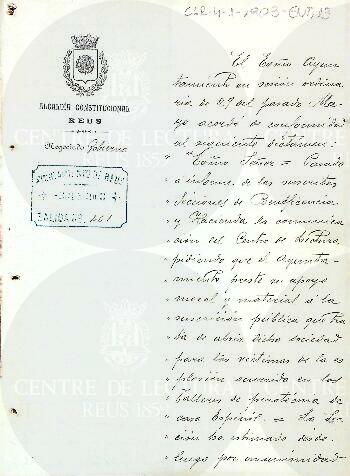 CLR-4-1-1903-ENT/13
ALCALDÍA CONSTITUCIONAL
REUS
Negociado Gobierno
AYUNTAMIENTO DE REUS
SALIDA Nº 461
El Exmo Ayun
tamiento en sesión ordina
ria de 29 del pasado Ma
yo acordó de conformidad
al siguiente dictamen:
"Exmo Señor = Pasada
" a informe de las suscritas
" Secciones de Beneficencia
" y Hacienda la comunica
" ción del Centro de Lectura
" pidiendo que el Ayunta-
" miento preste su apoyo
" moral y material á la
" suscrición pública que tra
" ta de abrir dicha sociedad
" para las víctimas de la ex
" plosión ocurrida en los
" talleres de pirotecnia de
" casa Espinós. = La Sec
" ción ha estimado desde
" luego por unanimidad
CENTRE DE LECTURA
REUS 1859